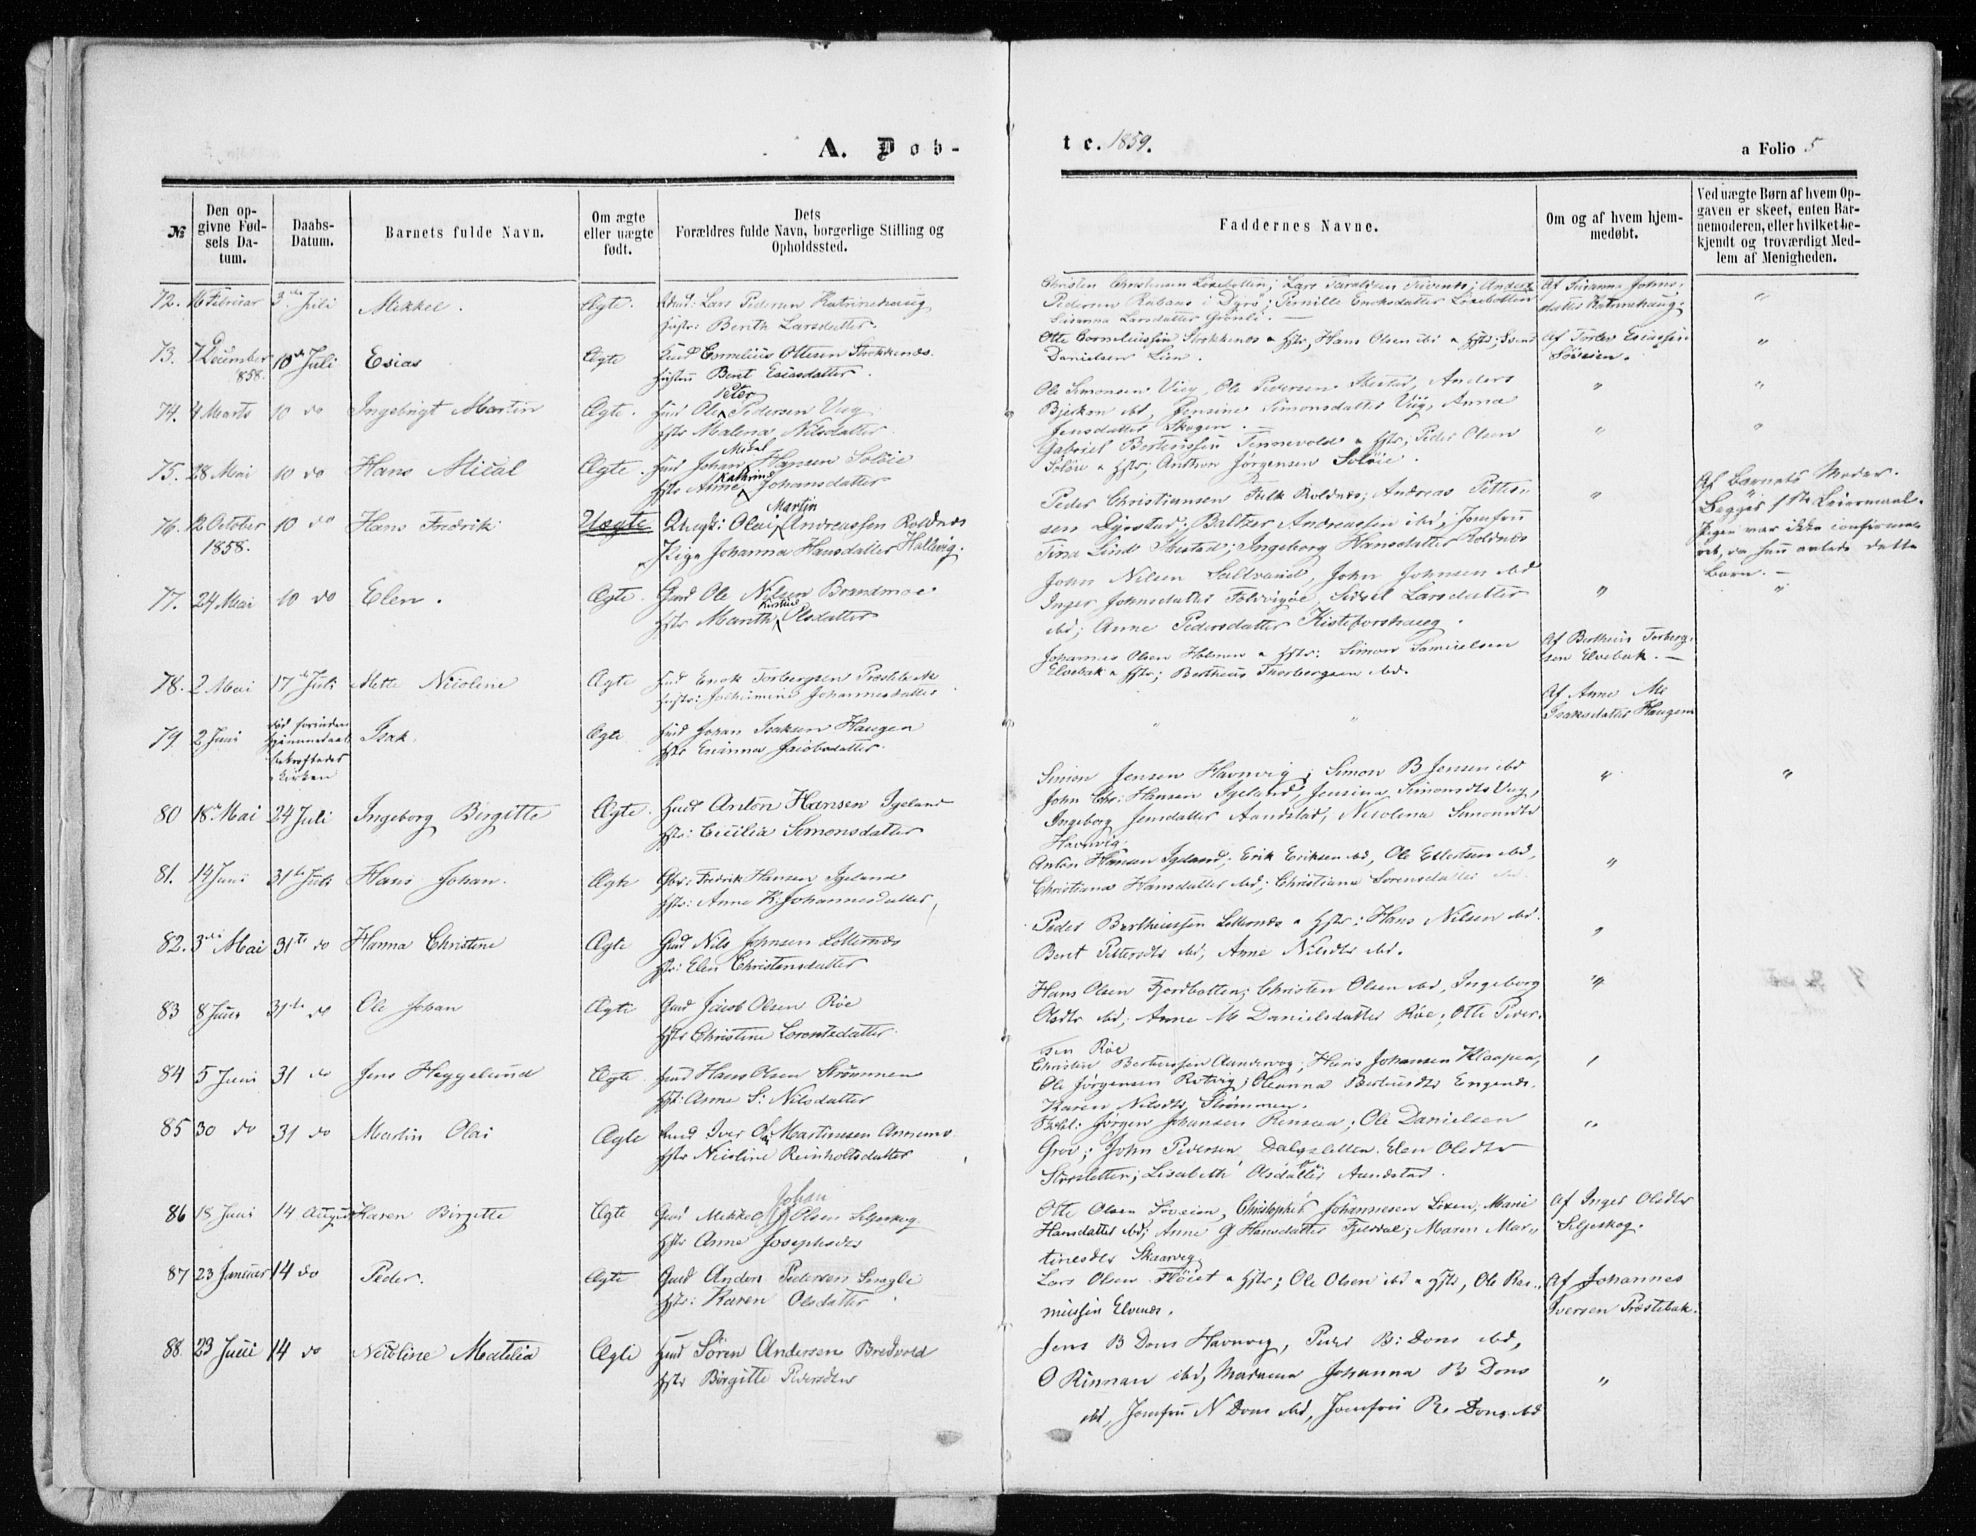 A. Døb-
te. 1859.
a Folio 5
№
Den op-
givne Fød-
sels Da-
tum.
Daabs-
Datum.
Barnets fulde Navn.
Om ægte
eller uægte
født.
Dets
Forældres fulde Navn, borgerlige Stilling og
Opholdssted.
Faddernes Navne.
Om og af hvem hjem-
medøbt.
Ved uægte Børn af hvem Op-
gaven er skeet, enten Bar-
nemoderen, eller hvilket be-
kjendt og troværdigt Med-
lem af Menigheden.
72. 16 Februar 3die Juli Mikkel. Ægte. Lars Pedersen Katrinehaug
Hustr: Berith Larsdatter.
Christen Christensen Löxebotten; Lars Taraldsen; Anders
Pedersen i Dyrö; Pernille Eriksdatter Löxebotten
Susanna Larsdatter Grönli. —
Af Susanna Johns-
datter Katrinehaug.
"
73. 7 December
1858. 10de Juli Esias Ægte Cornelius Ottesen Strokkenes.
Hustru Beret Esiasdatter.
Otte Corneliussen Strokkenes & Hstr, Hans Olsen ibd & Hstr;
Danielsen Lien.
Af Torlev Esiassen
Söveien.
"
74. 4 Marts 10 do Ingebrigt Martin Ægte. Ole Peter Pedersen Viig
Hstr Malena Nilsdatter
Ole Simonsen Viig, Ole Pedersen, Anders
ibd, Jensine Simonsdatter Viig, Anna
Jensdatter Skogen. —
" "
75. 28 Mai 10 do Hans Mical Ægte. Johan Mikal Hansen Solöie
Hstr Anne Kathrine Johansdatter
Gabriel Berteussen Tennevold & Hstr; Peder Olsen
Solöie & Hstr; Anthon Jörgensen Solöie.
" "
76. 12 October
1858. 10 do Hans Fredrik Uægte Olai Martin Andreassen Roldnes
Pige Johanna Hansdatter Hallevig.
Peder Christiansen Falk Roldnes; Andreas Petter-
sen Dyrstad; Baltzer Andreassen ibd; Jomfru
Tina Lind; Ingeborg Hansdatter Roldnes
"
Af Barnets Moder.
Begges 1ste Leiermaal.
Pigen var ikke confirme-
ret, da hun avlede dette
Barn. —
77. 24 Mai 10 do Elen. Ægte. Gmd Ole Nilsen Brandmoe
Hstr Marith Kirstine Olsdatter
John Nilsen Saltvand, John Johnsen ibd
Inger Johnsdatter, Sidsel Larsdatter
ibd; Anne Pedersdatter Kistefoshaug.
" "
78. 2 Mai 17de Juli Mette Nicoline Ægte Enok Torbergsen Prestbak
Hustr: Jochimine Johannesdatter
Johannes Olsen & Hstr: Simon Samuelsen
Elvebak & Hstr; Bertheus Thorbergsen ibd.
Af Bertheus Torberg-
sen Elvebak. —
79 2 Juni död forinden
Hjemmedaab
bekræftedes
i Kirken Isak. Ægte Johan Isaksen Haugen
Hstr Jacobsdatter.
" "
Af Anne M:
Isaksdatter Haugen
80 18de Mai 24 Juli Ingeborg Birgitte Ægte. Anton Hansen Igeland
Hstr: Cecilia Simonsdatter
Simon Jensen Havnvig; Simon B Jensen ibd
John Chr: Hansen Igeland, Jensina Simonsdtr Viig,
Ingeborg Jensdatter Aandstad, Nicolena Simonsdtr
Havnvig.
" "
81. 14 Juni 31te Juli Hans Johan. Ægte Fredrik Hansen Igeland
Hstr: Anne K: Johannesdatter
Anton Hansen Igeland; Erik Eriksen ibd, Ole ibd,
Christiana Hansdatter ibd; Christiana Sörensdatter ibd.
"
82. 3die Mai 31te do Hanna Christine Ægte Gmd Nils Johnsen Lotternes
Hstr: Elen Christensdatter
Peder Bertheussen Lotternes & Hstr: Hans Nilsen ibd.
Beret Pettersdtr ibd; Anne Nilsdtr ibd.
"
83 8 Juni 31te do Ole Johan Ægte Gmd Jacob Olsen Röe
Hstr Christine Lorentzdatter
Hans Olsen Fjordbotten; Christen Olsen ibd, Ingeborg
Olsdtr ibd; Anne M Danielsdatter Röe; Otte Peder-
sen Röe
"
84 5 Juni 31 do Jens Heggelund Ægte Hans Olsen Strömmen
Hstr: Anne S: Nilsdatter
Christen Berteussen Aandervog; Hans Johansen Klaapen,
Ole Jörgensen Rotvig; Oleanna Berteusdtr Engenes.
Karen Nilsdtr Strömmen.
"
85 30 do 31 do Martin Olai Ægte Iver Martinusen
Hstr Nicoline Reinholtsdatter
Jörgen Johansen Rensaa; Ole Danielsen
Grov; John Pedersen Dalsletten, Elen Olsdtr
Storsletten; Lisabeth Olsdatter Aandstad.
"
86 18 Juni 14 August Karen Birgitte Ægte Gmd Mikkel Johan Olsen Seljeskog
Hstr Anne Josephsdtr
Otte Olsen Söveien, Christopher Johannesen Löxen, Marie
Hansdatter ibd; Anne G Hansdatter Fjeldal; Maren Mar-
tinesdtr Skaarvig
Af Inger Olsdtr
Seljeskog.
87 23 Januar 14 do Peder. Ægte Gmd Anders Pedersen
Hstr: Karen Olsdatter
Lars Olsen Flöiet & Hstr; Ole Olsen ibd & Hstr, Ole Ras-
mussen Elvenes.
Af Johannes
Iversen Prestebak.
88 23 Juni 14 do Nicoline Matilia Ægte Sören Andersen Bredvold
Hstr Birgitte Pedersdtr
Jens B Dons Havnvig, Peder B: Dons ibd,
O Rinnan ibd, Madame Johanna B Dons
ibd, Jomfru N Dons ibd, Jomfru R. Dons ibd
"